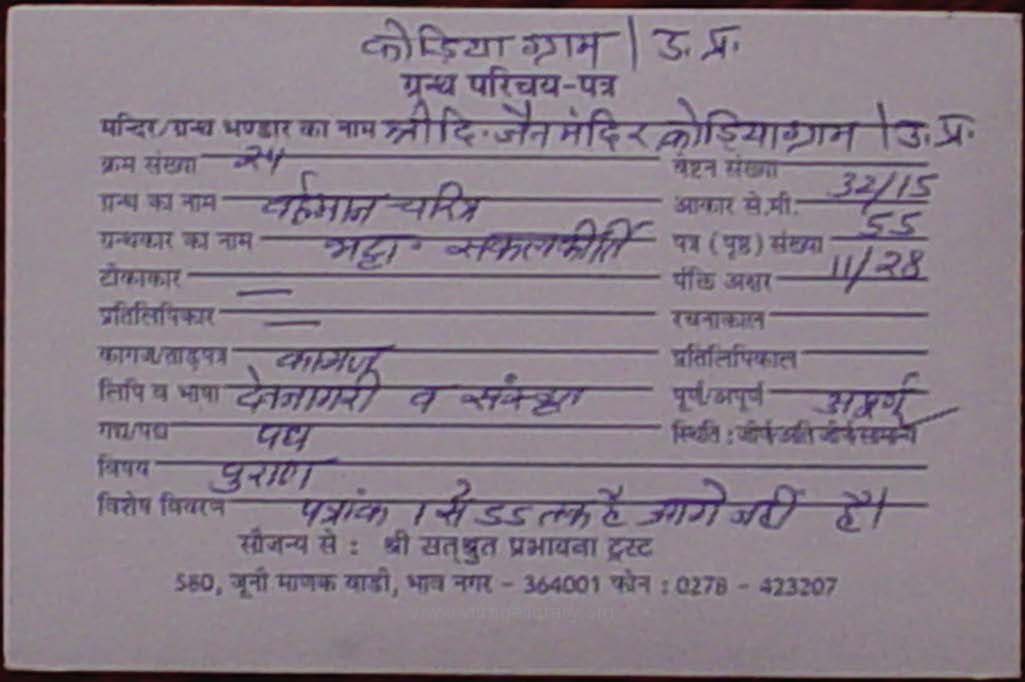 कोडिया ग्राम / उ. प्र.
ग्रन्थ परिचय-पत्र
मन्दिर/ग्रन्थ भण्डार का नाम श्री दि. जैन मंदिर कोडियाग्राम / उ. प्र.
क्रम संख्या २५ वेष्टन संख्या
ग्रन्थ का नाम वर्द्धमान चरित्र आकार से.मी. 32/15
ग्रन्थकार का नाम भट्टा. सकलकीर्ति पत्र (पृष्ठ) संख्या 55
टीकाकार — पंक्ति अक्षर 11/28
प्रतिलिपिकार — रचनाकाल
कागज/ताड़पत्र कागज प्रतिलिपिकाल
लिपि व भाषा देवनागरी व संस्कृत पूर्ण/अपूर्ण अपूर्ण
गद्य/पद्य पद्य स्थिति : जीर्ण/अति जीर्ण/सामान्य
विषय पुराण
विशेष विवरण पत्रांक 1 से 55 तक है आगे नहीं है।
सौजन्य से : श्री सत्श्रुत प्रभावना ट्रस्ट
580, जूनी माणक वाडी, भाव नगर - 364001 फोन : 0278 - 423207